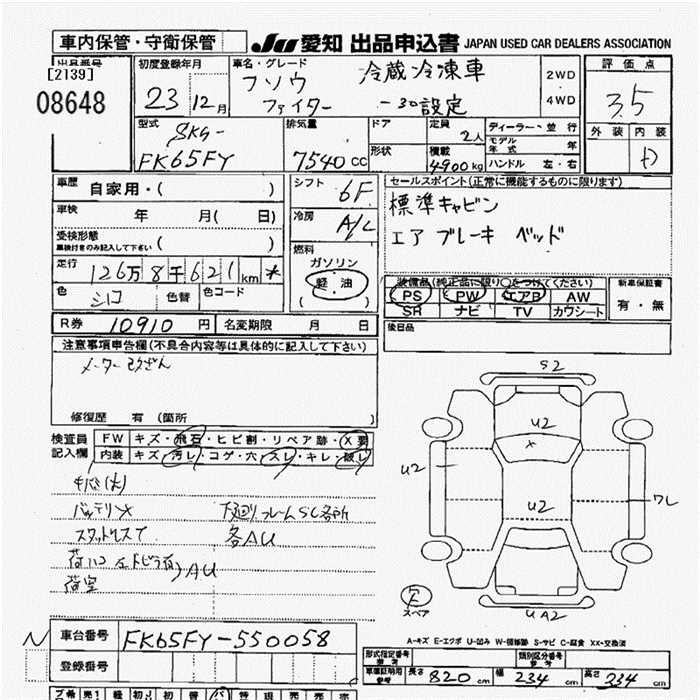 車内保管・守衛保管
JU 愛知 出品申込書 JAPAN USED CAR DEALERS ASSOCIATION
出品番号
[2139]
08648
初度登録年月
23 12月
車名・グレード
フソウ 冷蔵冷凍車
ファイター -30設定
2WD
4WD
評価点
3.5
外装 内装
D
型式
SKG-
FK65FY
排気量
7540 CC
ドア
形状
定員
2人
積載
4900kg
ディーラー・並行
モデル年式 年
ハンドル 左・右
車歴 自家用・( )
車検 年 月( 日)
受検形態
車検付きのみ記入して下さい ( )
走行 126万8千621km *
色 シロ 色替 色コード
シフト 6F
冷房 A/C
燃料
ガソリン
軽油
( )
セールスポイント(正常に機能するものに限ります)
標準キャビン
エアブレーキ ベッド
装備品(純正品に限り○をつけてください)
PS PW エアB AW
SR ナビ TV カワシート
新車保証書
有・無
R券 10910円 名変期限 月 日
後日品
注意事項申告欄(不具合内容等は具体的に記入して下さい)
メーター改ざん
修復歴 有 (箇所 )
検査員記入欄
FW キズ・飛石・ヒビ割・リペア跡・X要
内装 キズ・汚レ・コゲ・穴・スレ・キレ・破レ
バッテリーX
下廻りフレームSC各所
スタットレスて
各AU
AU
荷室
S2
U2
U2
U2
ワレ
UA2
スペア
A-キズ E-エクボ U-凹み W-補修跡 S-サビ C-腐食 XX-交換済
N
車台番号 FK65FY-550058
登録番号
型式指定番号
類別区分番号
参考
長さ 820 cm 幅 234 cm 高さ 334 cm